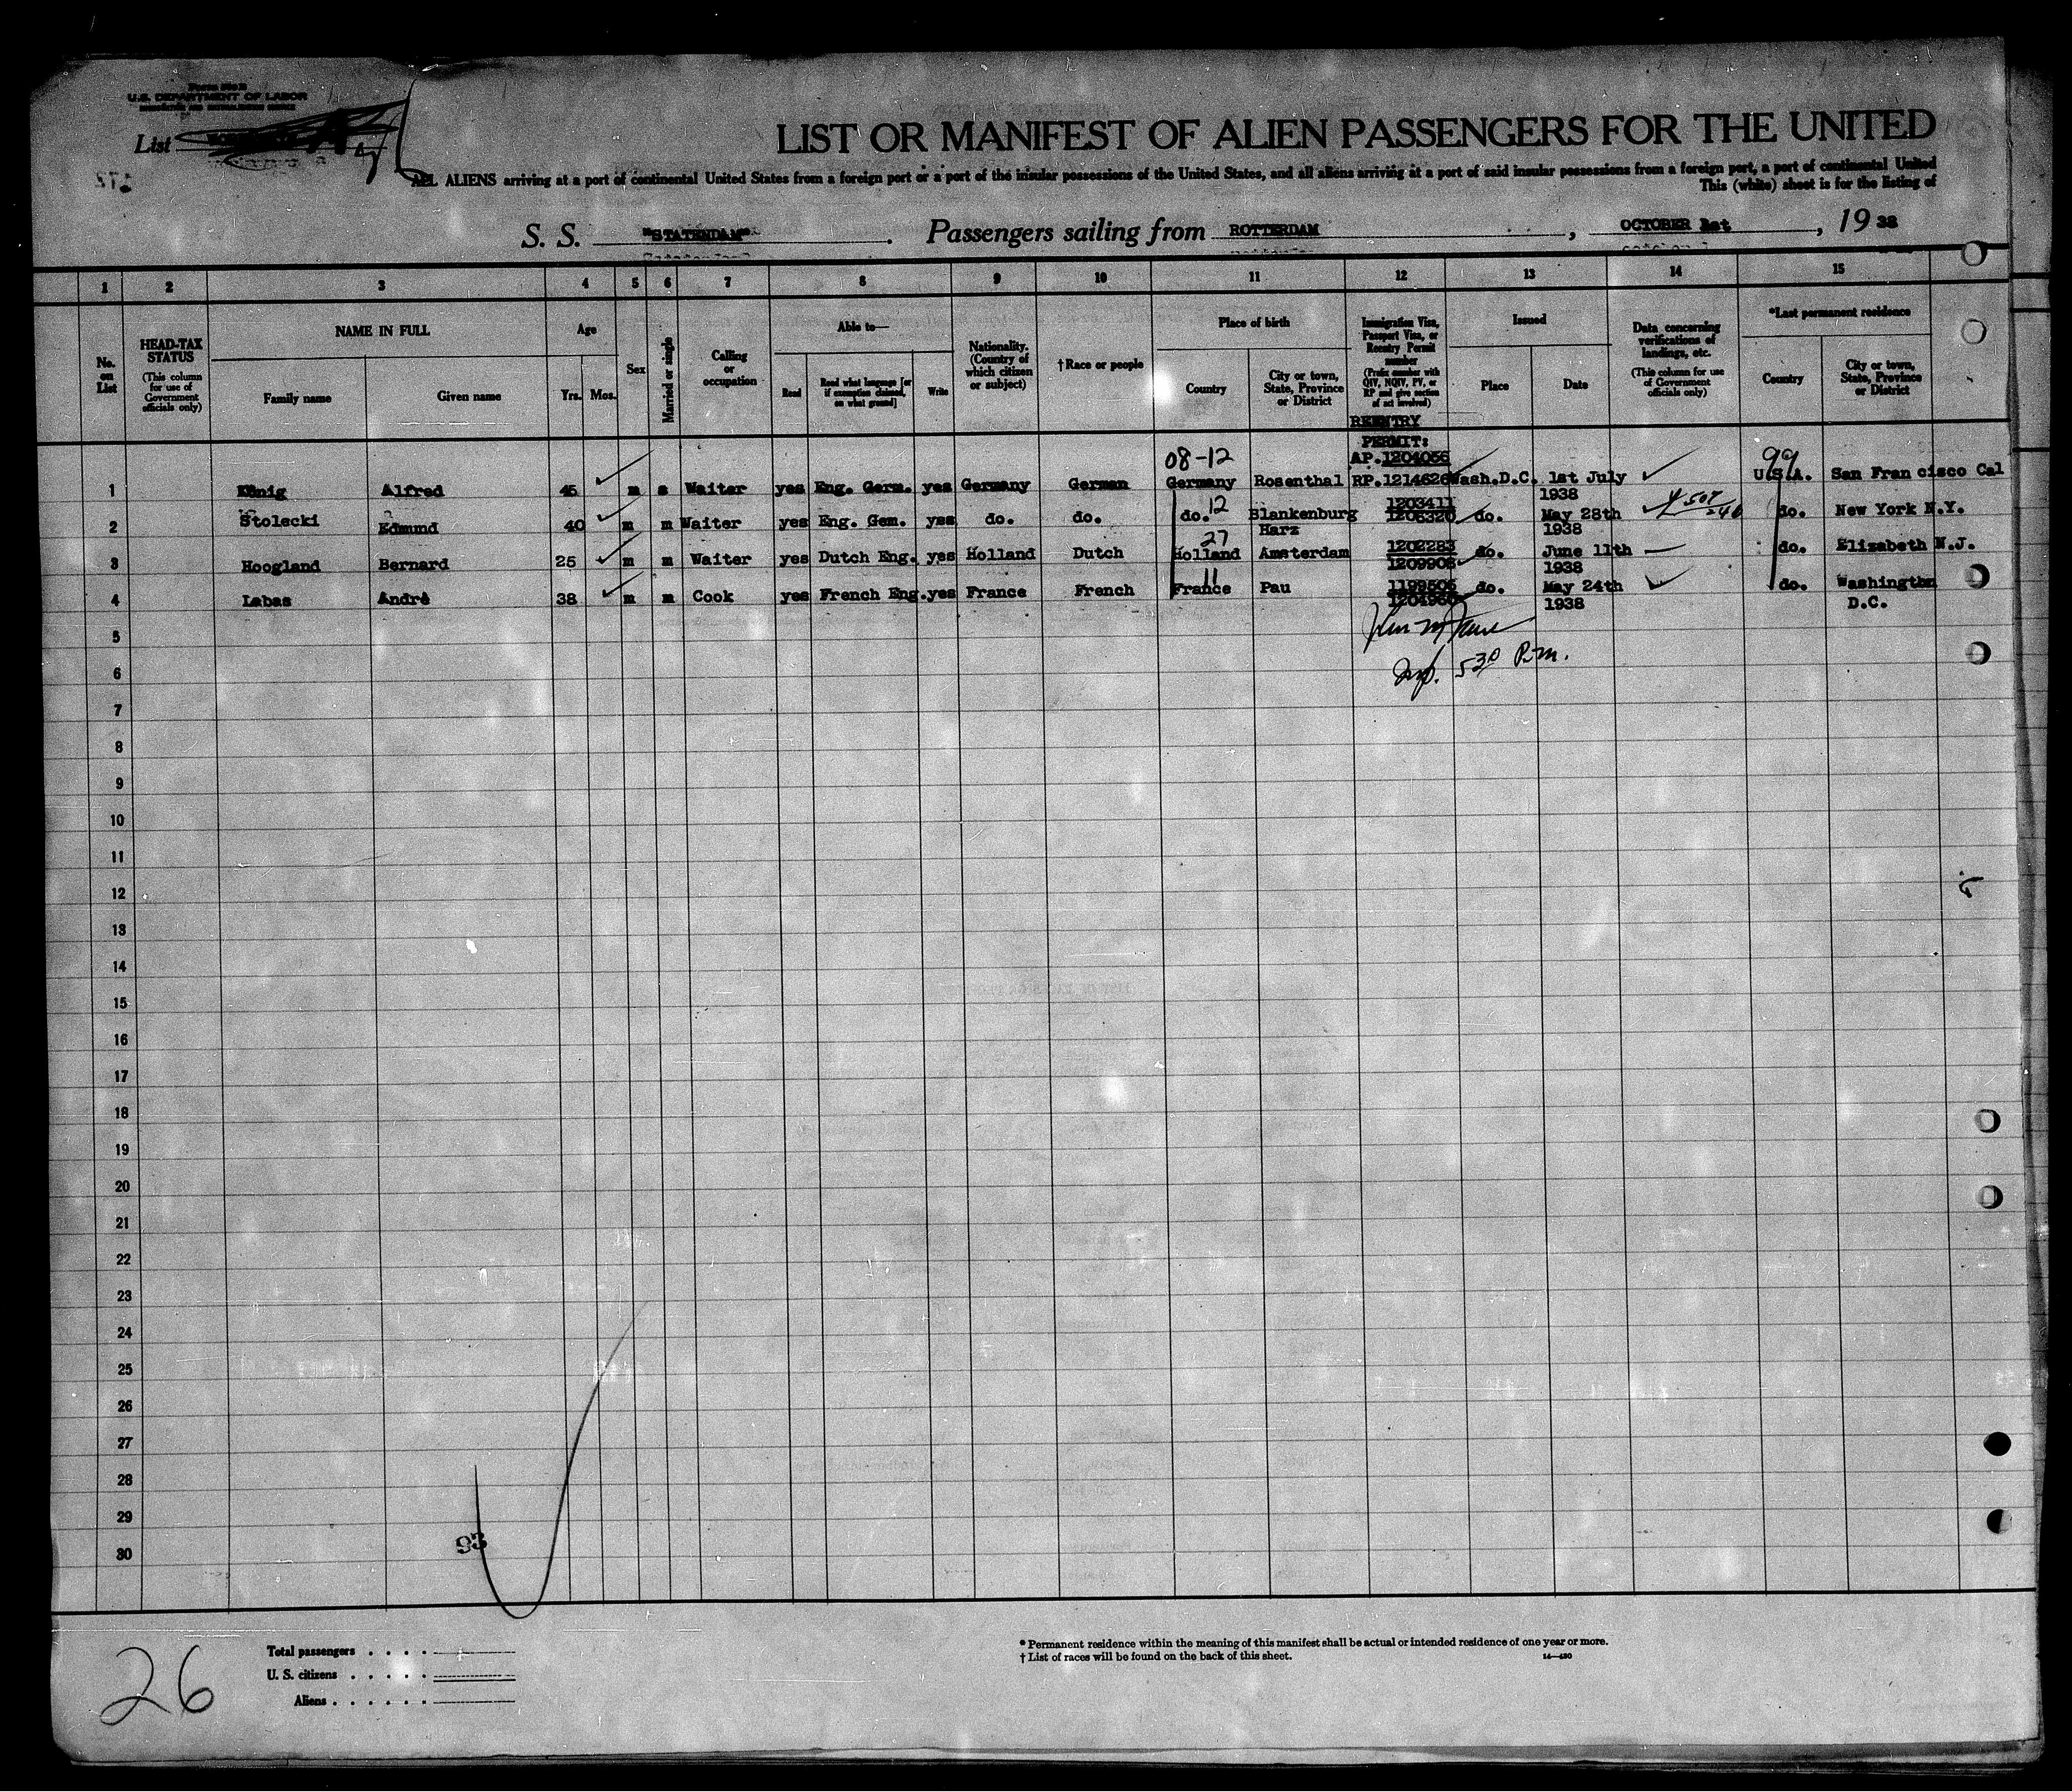 U.S. DEPARTMENT OF LABOR
List
LIST OR MANIFEST OF ALIEN PASSENGERS FOR THE UNITED
ALL ALIENS arriving at a port of continental United States from a foreign port or a port of the insular possessions of the United States, and all aliens arriving at a port of said insular possessions from a foreign port, a port of continental United
This (white) sheet is for the listing of
S. S. "STATENDAM". Passengers sailing from ROTTERDAM , OCTOBER 1st , 19 38
1 2 3 4 5 6 7 8 9 10 11 12 13 14 15
No. on List
HEAD-TAX STATUS (This column for use of Government officials only)
NAME IN FULL
Family name Given name
Age
Yrs. Mos.
Sex
Married or single
Calling or occupation
Able to—
Read Read what language [or if exemption claimed, on what ground] Write
Nationality. (Country of which citizen or subject)
†Race or people
Place of birth
Country City or town, State, Province or District
Immigration Visa, Passport Visa, or Reentry Permit number (Prefix number with QIV, NQIV, PV, or RP and give section of act involved)
Issued
Place Date
Data concerning verifications of landings, etc. (This column for use of Government officials only)
*Last permanent residence
Country City or town, State, Province or District
REENTRY
PERMIT:
08-12 AP.1204056 99
1 König Alfred 45 m s Waiter yes Eng. Germ. yes Germany German Germany Rosenthal RP.1214626 Wash.D.C. 1st July 1938 U.S.A. San Fran cisco Cal
2 Stolecki Edmund 40 m m Waiter yes Eng. Gem. yes do. do. do. 12 Blankenburg Harz 1203411 1206320 do. May 28th 1938 do. New York N.Y.
27
3 Hoogland Bernard 25 m m Waiter yes Dutch Eng. yes Holland Dutch Holland Amsterdam 1202283 1209908 do. June 11th 1938 do. Elizabeth N.J.
11
4 Labas André 38 m m Cook yes French Eng. yes France French France Pau 1199506 1204966 do. May 24th 1938 do. Washington D.C.
5
6 530 P.m.
7
8
9
10
11
12
13
14
15
16
17
18
19
20
21
22
23
24
25
26
27
28
29
93
30
26
Total passengers . . . .
U. S. citizens . . . . .
Aliens . . . . . .
* Permanent residence within the meaning of this manifest shall be actual or intended residence of one year or more.
† List of races will be found on the back of this sheet. 14—480